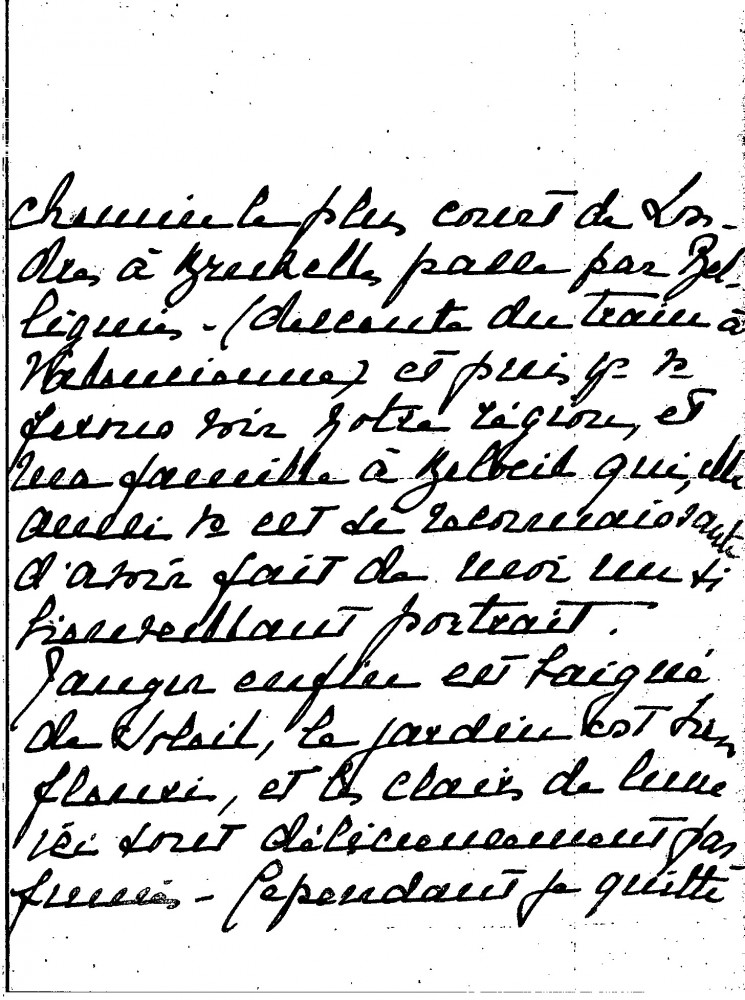 chemin le plus court de Lon-
dres à Bruxelles passe par Bel-
lignies - (descente du train à
Valenciennes) et puis je v̅s̅
ferons voir notre région, et
ma famille à Belœil qui, elle
aussi v̅s̅ est si reconnaissante
d'avoir fait de moi un si
bienveillant portrait.
Tanger enfin est baigné
de soleil, le jardin est tres
fleuri, et les clairs de lune
ici sont délicieusement par
fumés - Cependant je quitte